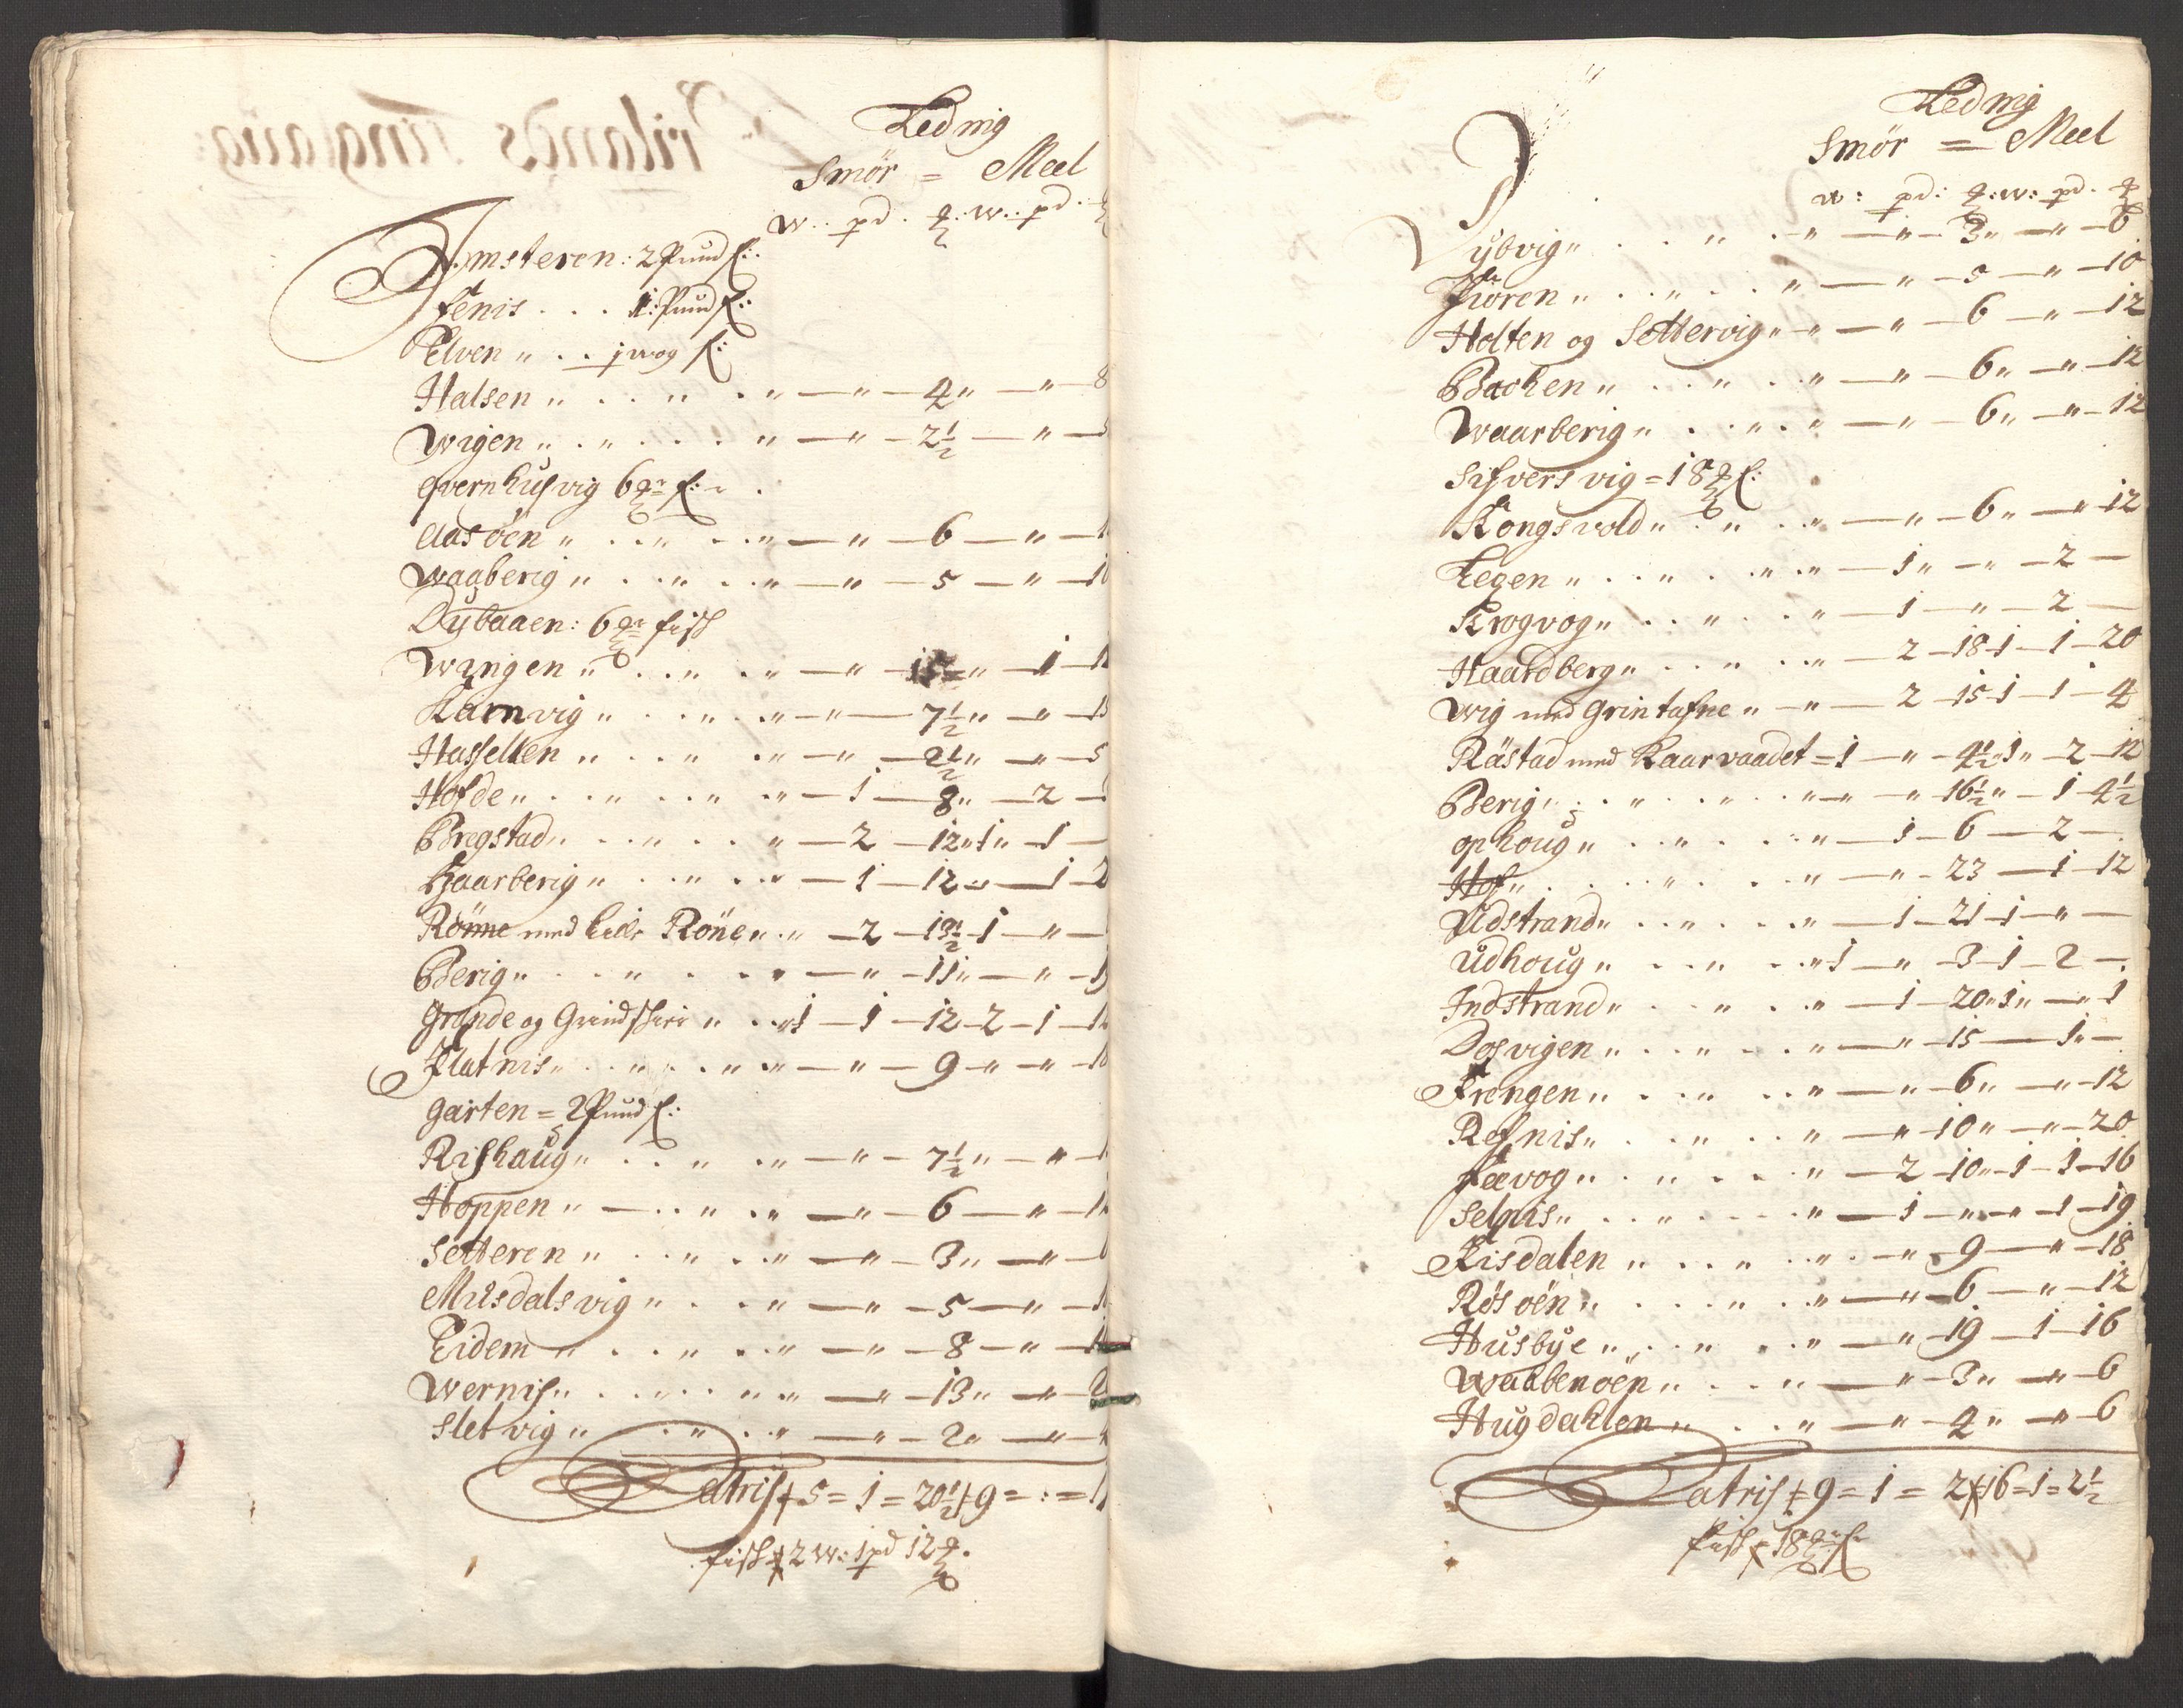 Leding
Smör = Meel
w. pd. w. pd.
Imsteren: 2 Pund f:
fenis . . . 1: Pund f:
Elven „ . . j wog f:
Halsen „ . . „ . „ — „ — 4 „ — „ — 8
Wigen „ . „ . . . „ — „ — 2½ — „ —
qvernhusvig 6 f:
Aasöen „ . . „ . . „ — „ — 6 — „ —
Waaberig „ . . „ . . „ — „ — 5 — „ — 10
Dybaaen: 6 fisk
Wingen „ . . „ . „ — „ — 15 „ — 1 —
Karnvig „ . . „ . „ — „ — 7½ „ — „ — 15
Hasselten „ . . „ . „ — „ — 2½ „ — „ — 5
Hofde „ . . „ . . „ . „ — 1 — 8 „ — 2 —
Bregstad „ . . „ . . „ — 2 — 12 „ 1 „ — 1 —
Haarberig „ . . „ . „ — 1 — 12 „ — 1 — 2
Rönne med lille Röne „ . „ — 2 — 13½ — 1 — „ —
Berig „ . . „ . . „ — „ — 11 „ — „ — 19
Grande og Grindskier „ . . „ 1 — 1 — 12 — 2 — 1 —
Flatnis „ . . „ . . „ . „ — „ — 9 — „ — „ — 18
Garten = 2 Pund f:
Rishaug „ . . „ . „ — „ — 7½ „ — „ —
Hoppen „ — . . „ . „ — „ — 6 — „ —
Setteren „ . . „ . . „ — „ — 3 „ — „ —
Musdalsvig „ . . . „ — „ — 5 — „ —
Eidem „ . . „ . . „ — „ — 8 — „ —
Wernis „ . . „ . . „ . „ — „ — 13 „ — „ — 2
Sletvig „ . . „ . . „ — „ — 2 „ — „ —
Latris 5 = 1 = 20½ 9 = : =
fisk 2 w: 1 pd 12
Leding
Smör = Meel
w: pd: w: pd.
Dybvig „ . . „ . „ — „ — 3 „ — „ — 6
Fiören „ . . „ . . „ — „ — 5 — „ — 10
Holten og Settervig „ — „ — „ — 6 — „ — 12
Bachen „ . . „ . . „ — „ — 6 „ — „ — 12
Waarberig „ . . „ . „ — „ — 6 „ — „ — 12
Sifversvig = 18 f:
Kongsvold „ . „ . . „ — „ — 6 „ — „ — 12
Legen „ . . „ . „ . „ — 1 „ — „ — 2 —
Krogvog „ . . „ . . „ — 1 — „ — 2 —
Haardberg „ . . „ . . „ — 2 — 18 — 1 — 1 — 20
Wig med Grintafne „ — „ — 2 — 15 — 1 — 1 — 4
Råstad med Kaarvaadet = 1 — „ — 4½ „ 1 „ — 2 — 12
Berig „ . . „ . . „ . „ — „ — „ — 16½ „ — 1 — 4½
ophoug „ . . „ . . „ — 1 — 6 — 2 — .
Hof „ . . „ . . „ — „ — 23 — 1 — 12
Udstrand „ . . „ . . „ — 1 — 21 — 1 — „ —
Udhoug „ . . „ . . „ 1 — „ — 3 — 1 — 2 — .
Indstrand „ . . „ . „ — 1 — 20 „ 1 „ — „ 1
Dosvigen „ . . „ . . „ — „ — 15 — 1 „ —
Frengen „ . . „ . . „ — „ — 6 „ — „ — 12
Refnis „ . . „ . . „ — „ — 10 „ — „ — 20
Fævog „ . . „ . . „ — 2 — 10 „ — 1 — 1 — 16
Selnis „ . . „ . . „ — 1 — „ — „ — 1 — 19
Risdalen „ . . „ . . „ . — „ — 9 — „ — 18
Rösöen „ . . „ . „ — „ — 6 — „ — 12
Husbye „ . . „ . . „ — „ — 19 — 1 — 16
Waabenöen „ . . „ — „ — 3 „ — „ — 6
Hugdahlen „ . . „ — „ — 4 „ — „ — 6
Latris 9 = 1 = 2 16 = 1 = 2½
fisk 18